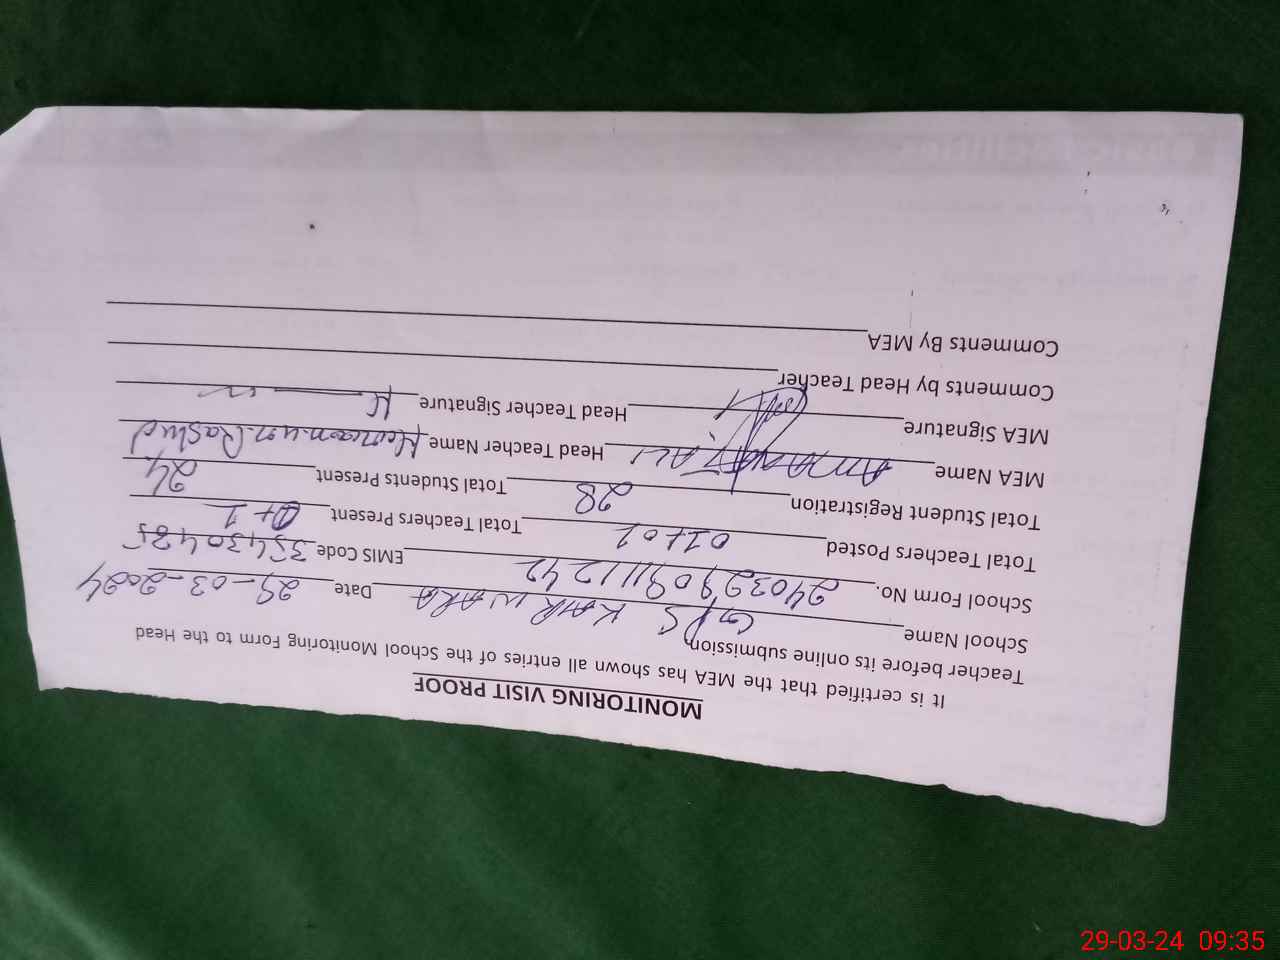 MONITORING VISIT PROOF
It is certified that the MEA has shown all entries of the School Monitoring Form to the Head
Teacher before its online submission
School Name GPS KAHR WARA Date 29-03-2024
School Form No. 240329091111242 EMIS Code 35430485
Total Teachers Posted 01+01 Total Teachers Present 0+1
Total Student Registration 28 Total Students Present 24
MEA Name AMANAT ALI Head Teacher Name Haroon-u-r-Rashid
MEA Signature Head Teacher Signature
Comments by Head Teacher
Comments By MEA
29-03-24 09:35